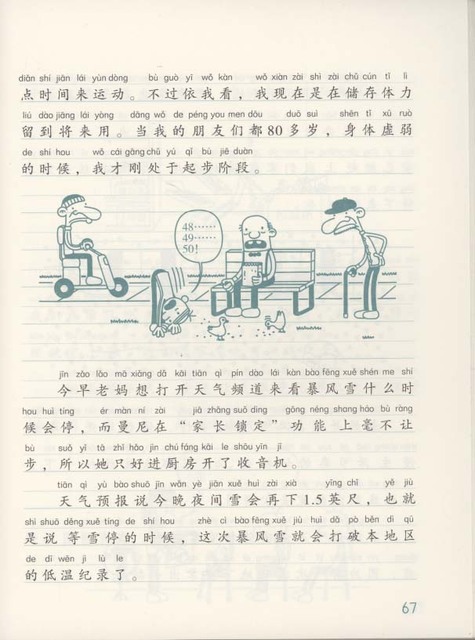 diǎn shí jiān lái yùn dòng bù guò yī wǒ kàn wǒ xiàn zài shì zài chǔ cún tǐ lì
点时间来运动。不过依我看，我现在是在储存体力
liú dào jiāng lái yòng dāng wǒ de péng you men dōu duō suì shēn tǐ xū ruò
留到将来用。当我的朋友们都80多岁，身体虚弱
de shí hou wǒ cái gāng chǔ yú qǐ bù jiē duàn
的时候，我才刚处于起步阶段。
48……
49……
50！
jīn zǎo lǎo mā xiǎng dǎ kāi tiān qì pín dào lái kàn bào fēng xuě shén me shí
今早老妈想打开天气频道来看暴风雪什么时
hou huì tíng ér màn ní zài jiā zhǎng suǒ dìng gōng néng shang háo bù ràng
候会停，而曼尼在“家长锁定”功能上毫不让
bù suǒ yǐ tā zhǐ hǎo jìn chú fáng kāi le shōu yīn jī
步，所以她只好进厨房开了收音机。
tiān qì yù bào shuō jīn wǎn yè jiān xuě huì zài xià yīng chǐ yě jiù
天气预报说今晚夜间雪会再下1.5英尺，也就
shì shuō děng xuě tíng de shí hou zhè cì bào fēng xuě jiù huì dǎ pò běn dì qū
是说等雪停的时候，这次暴风雪就会打破本地区
de dī wēn jì lù le
的低温纪录了。
67